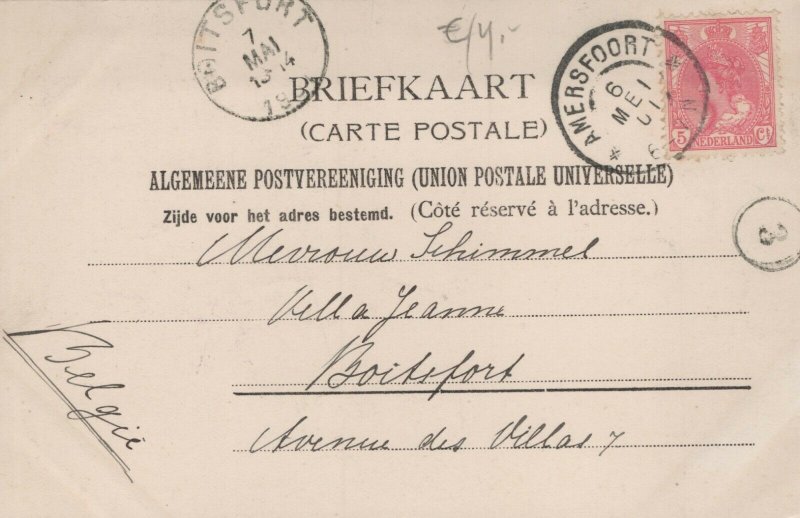 BOITSFORT
7
MAI
13-14
19
€/4.-
AMERSFOORT
6
MEI
5 Ct
NEDERLAND
BRIEFKAART
(CARTE POSTALE)
ALGEMEENE POSTVEREENIGING (UNION POSTALE UNIVERSELLE)
Zijde voor het adres bestemd. (Côté réservé à l'adresse.)
3
Mevrouw Schimmel
Villa Jeanne
Boitsfort
Avenue des Villas 7
België